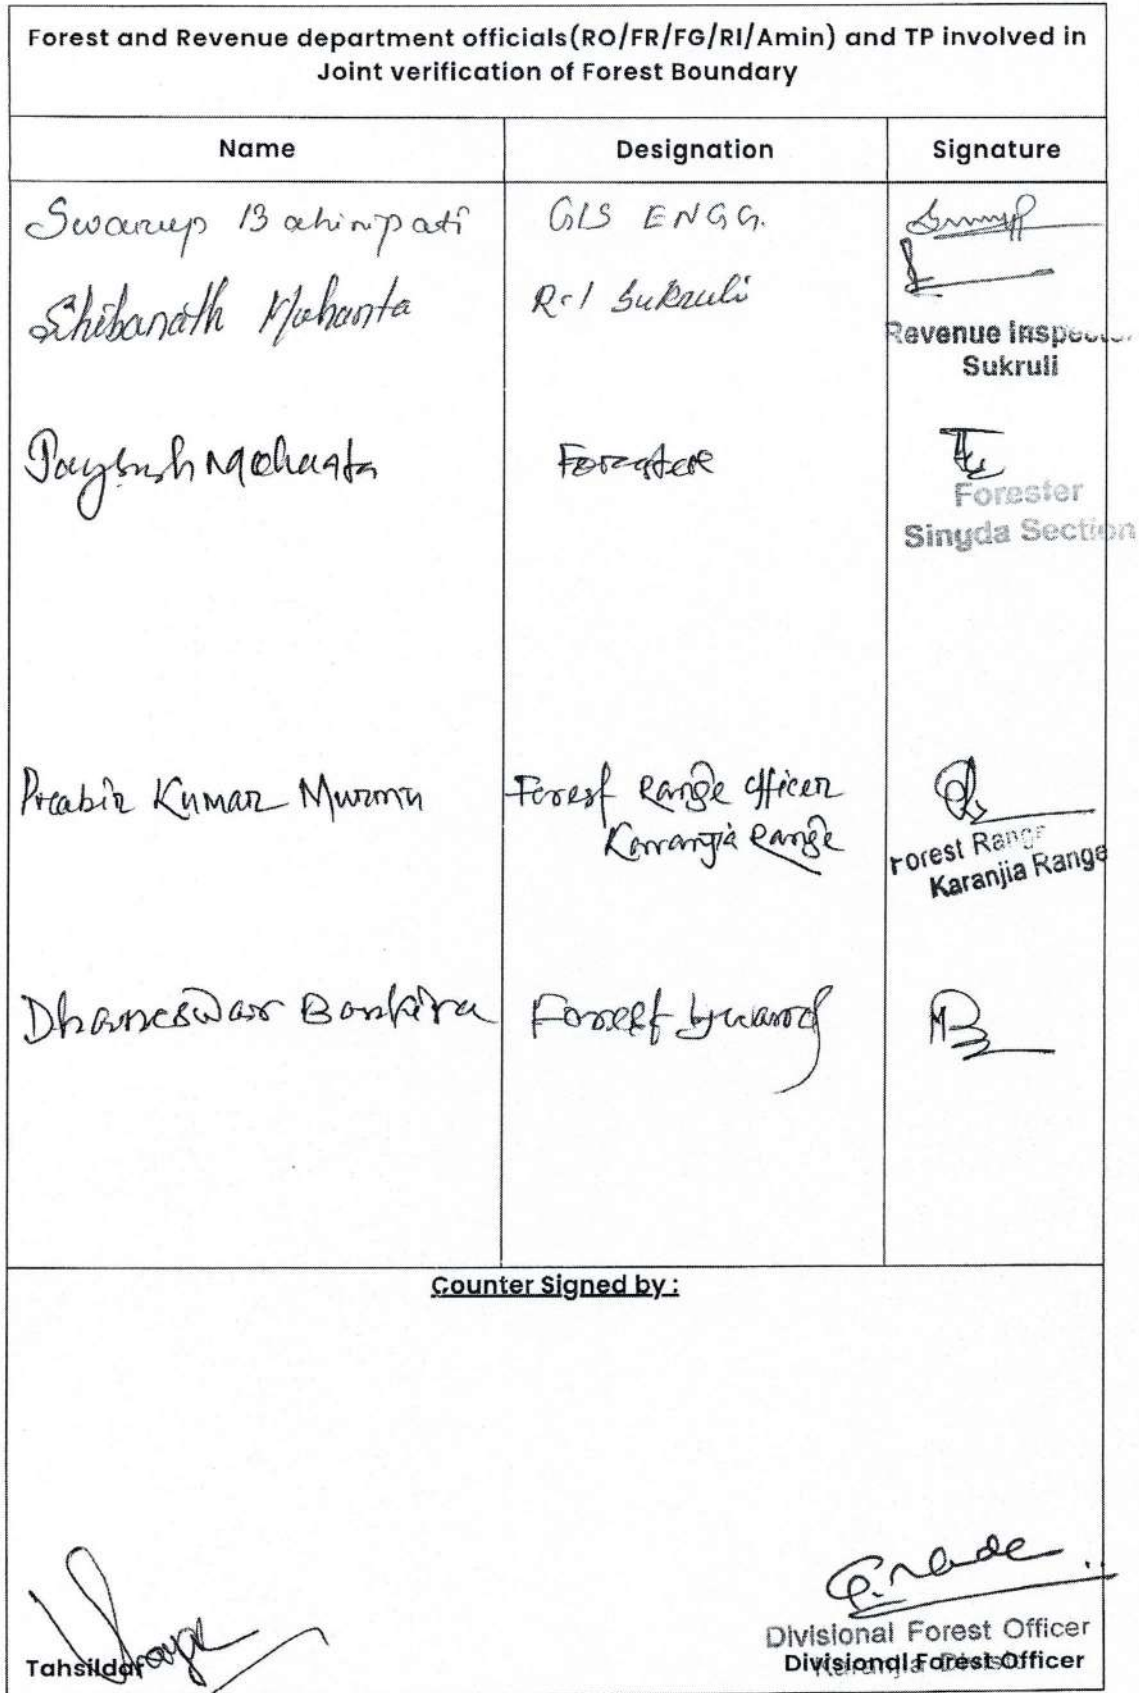 Forest and Revenue department officials(RO/FR/FG/RI/Amin) and TP involved in
Joint verification of Forest Boundary
Name Designation Signature
Swarup Bahinipati GIS ENGG.
Shibanath Mahanta R.I Sukruli
Revenue Inspector
Sukruli
Mohanta Forester
Forester
Singda Section
Prabir Kumar Murmu Forest Range Officer
Karanjia Range
Forest Range
Karanjia Range
Dhaneswar Bankira Forest Guard
Counter Signed by :
Divisional Forest Officer
Tahsildar Divisional Forest Officer
Karanjia Division